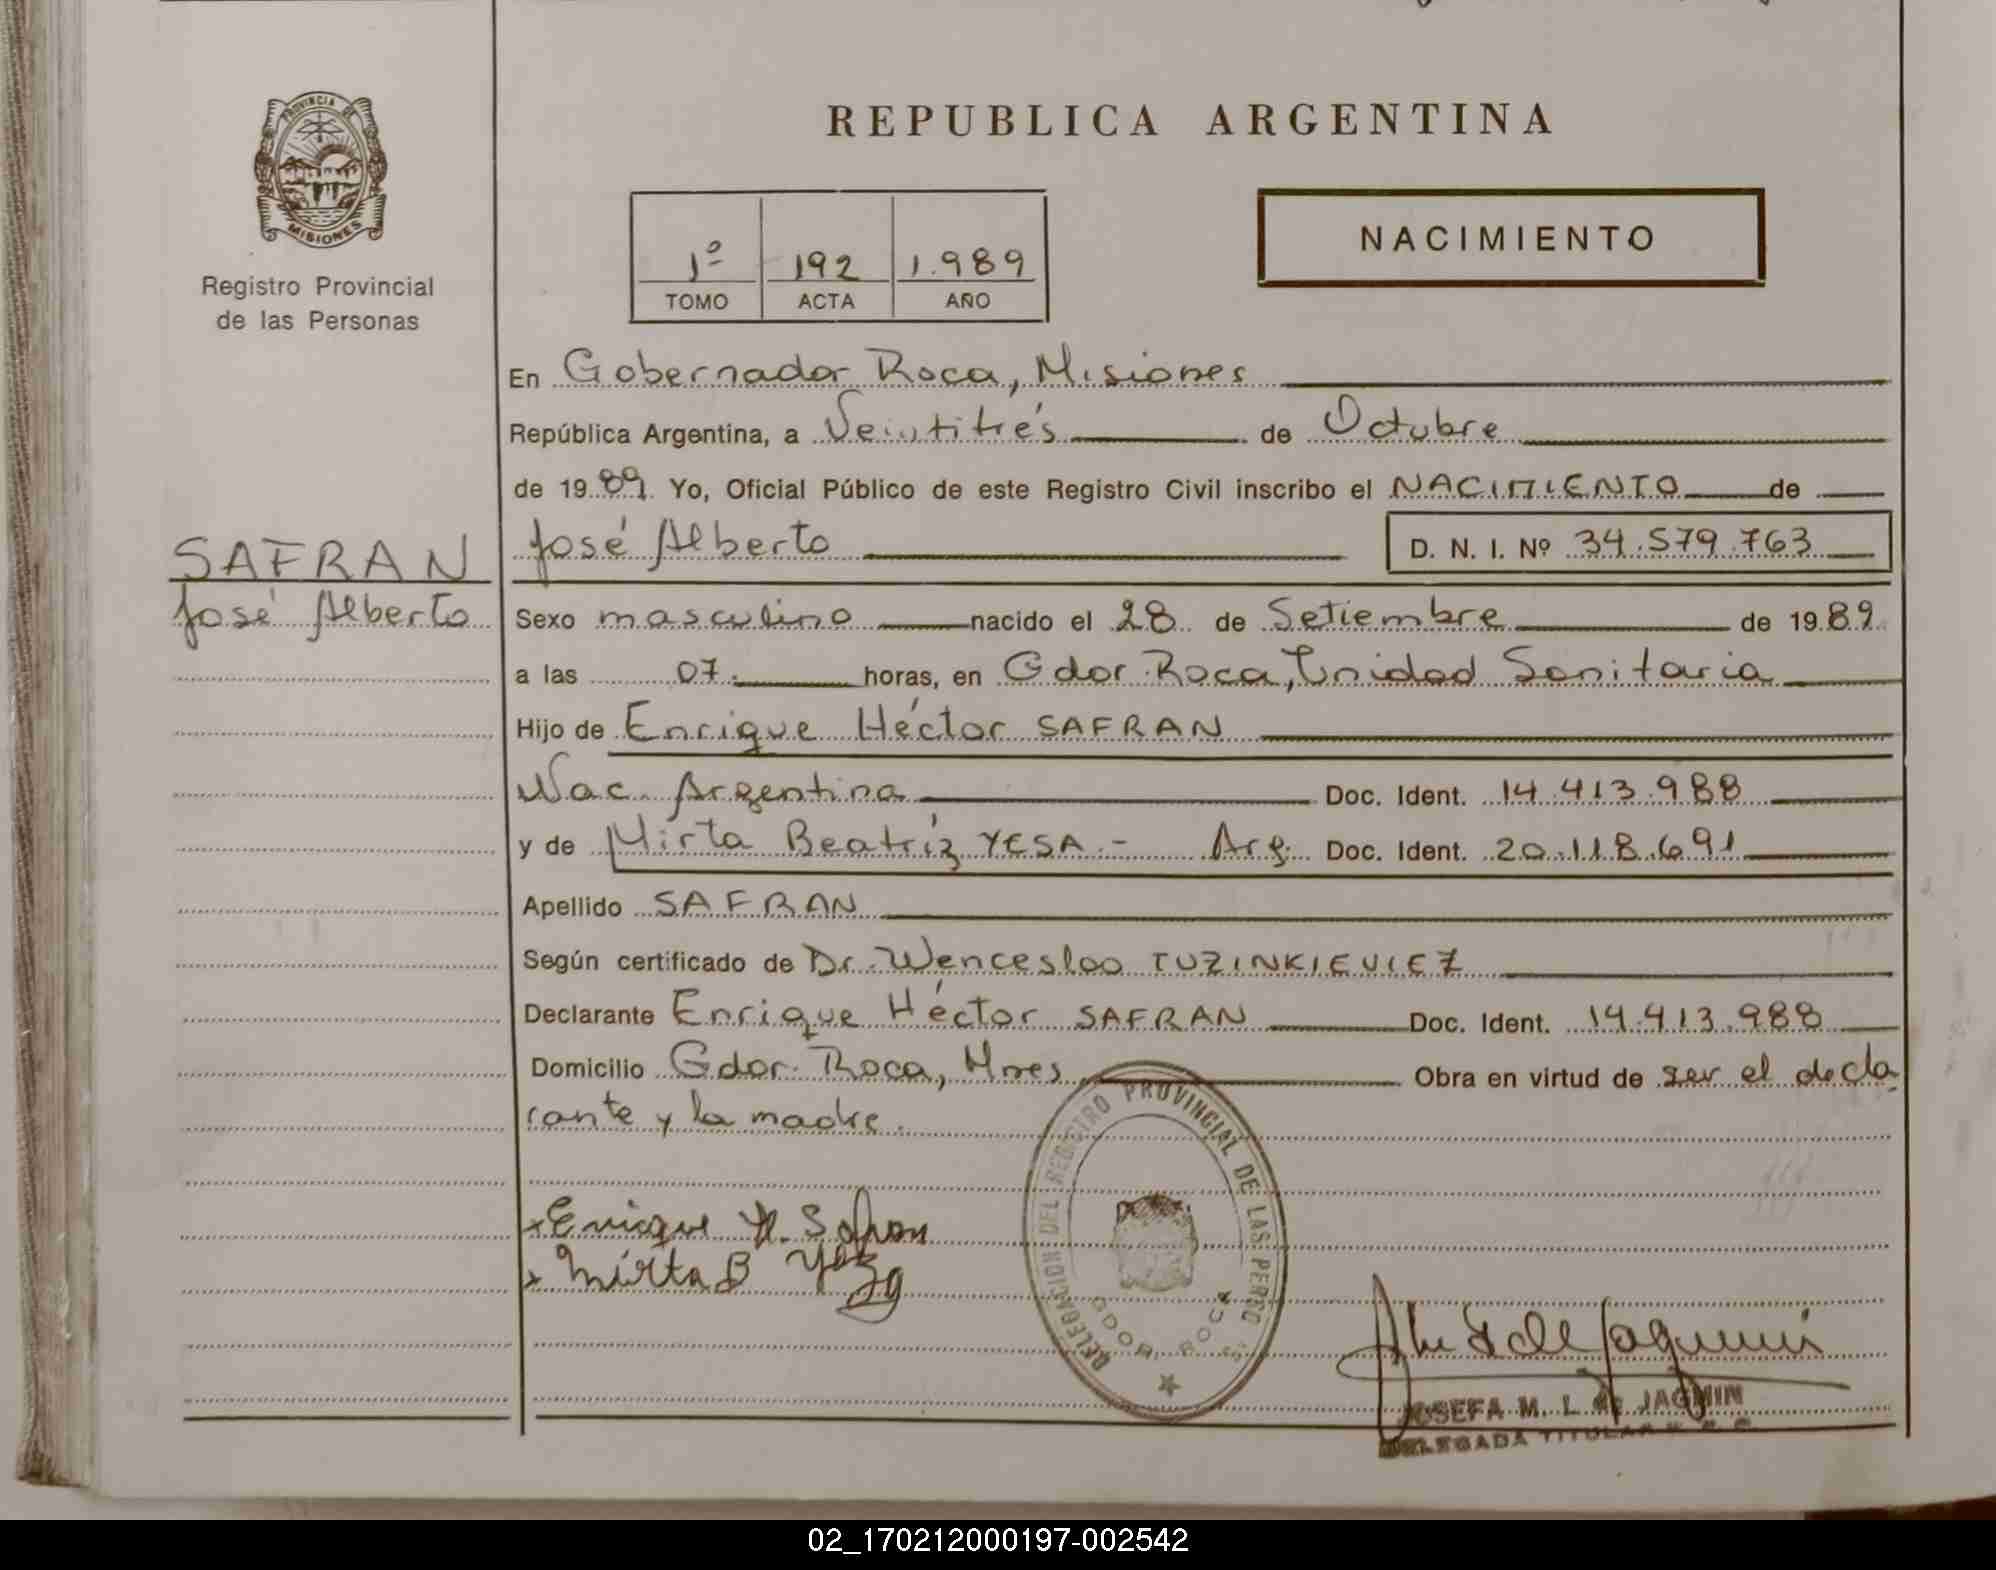 PROVINCIA DE
MISIONES
Registro Provincial
de las Personas
SAFRAN
José Alberto
REPUBLICA ARGENTINA
1º 192 1.989
TOMO ACTA AÑO
NACIMIENTO
En Gobernador Roca, Misiones
República Argentina, a Veintitrés de Octubre
de 1989 Yo, Oficial Público de este Registro Civil inscribo el NACIMIENTO de
José Alberto D. N. I. Nº 34.579.763
Sexo masculino nacido el 28 de Setiembre de 1989
a las 07. horas, en Gdor. Roca, Unidad Sanitaria
Hijo de Enrique Héctor SAFRAN
Nac. Argentina Doc. Ident. 14.413.988
y de Mirta Beatríz YESA.- Arg. Doc. Ident. 20.118.691
Apellido SAFRAN
Según certificado de Dr. Wenceslao TUZINKIEVIEZ
Declarante Enrique Héctor SAFRAN Doc. Ident. 14.413.988
Domicilio Gdor. Roca, Mnes Obra en virtud de ser el decla
rante y la madre.
DELEGACION DEL REGISTRO PROVINCIAL DE LAS PERSO
GDOR. ROCA
x Enrique H. Safran
x Mirta B
JOSEFA M. L. de JAGMIN
DELEGADA TITULAR
02_170212000197-002542